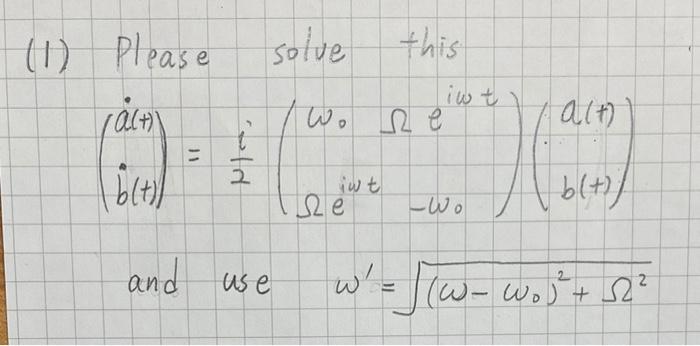 (1) Please solve this
(ȧ(t) ḃ(t)) = i/2 (ω₀ Ωe^{iωt} Ωe^{iωt} -ω₀) (a(t) b(t))
and use ω' = √((ω - ω₀)² + Ω²)